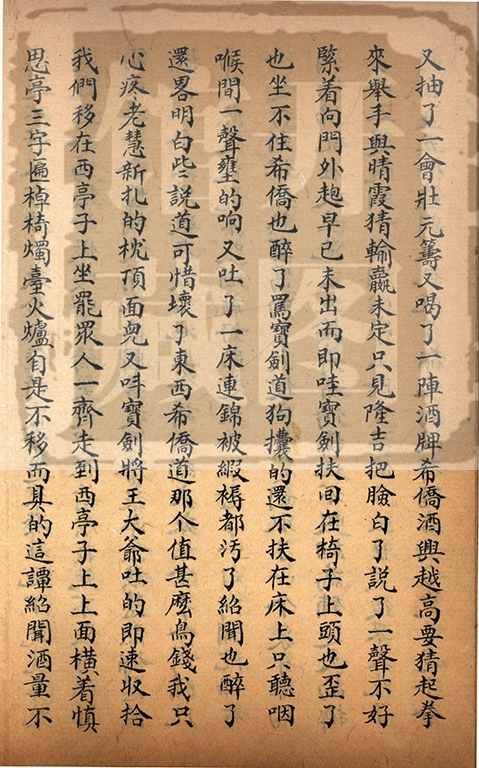 又抽了一會壯元籌又喝了一陣酒牌希僑酒興越高要猜起拳
來舉手與晴霞猜輪贏未定只見隆吉把臉白了說了一聲不好
緊着向門外趄早已未出而即哇寶劍扶回在椅子上頭也歪了
也坐不住希僑也醉了罵寶劍道狗攮的還不扶在床上只聽咽
喉間一聲壅的响又吐了一床連錦被緞褥都汚了紹聞也醉了
還畧明白些說道可惜壞了東西希僑道那个值甚麽鳥錢我只
心疼老慧新扎的枕頂面兒又呌寶劍將王大爺吐的即速收拾
我們移在西亭子上坐罷眾人一齊走到西亭子上上面橫着慎
思亭三字匾棹椅燭臺火爐自是不移而具的這譚紹聞酒量不